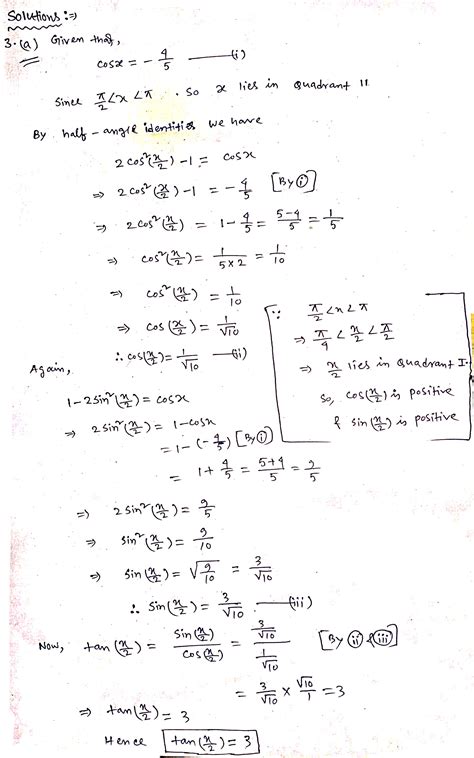 Solutions :⇒
3.(a) Given that,
cosx = - 4/5 —(i)
Since π/2 < x < π . So x lies in Quadrant II
By half-angle identities we have
2cos²(x/2) - 1 = cosx
⇒ 2cos²(x/2) - 1 = - 4/5 [By (i)]
⇒ 2cos²(x/2) = 1 - 4/5 = (5-4)/5 = 1/5
⇒ cos²(x/2) = 1/(5×2) = 1/10
⇒ cos²(x/2) = 1/10
⇒ cos(x/2) = 1/√10
∴ cos(x/2) = 1/√10 —(ii)
∵ π/2 < x < π
⇒ π/4 < x/2 < π/2
⇒ x/2 lies in Quadrant I.
So, cos(x/2) is positive
& sin(x/2) is positive
Again,
1 - 2sin²(x/2) = cosx
⇒ 2sin²(x/2) = 1 - cosx
= 1 - (- 4/5) [By (i)]
= 1 + 4/5 = (5+4)/5 = 9/5
⇒ 2sin²(x/2) = 9/5
⇒ sin²(x/2) = 9/10
⇒ sin(x/2) = √(9/10) = 3/√10
∴ sin(x/2) = 3/√10 —(iii)
Now, tan(x/2) = sin(x/2)/cos(x/2) = (3/√10)/(1/√10) [By (ii) & (iii)]
= 3/√10 × √10/1 = 3
⇒ tan(x/2) = 3
Hence tan(x/2) = 3